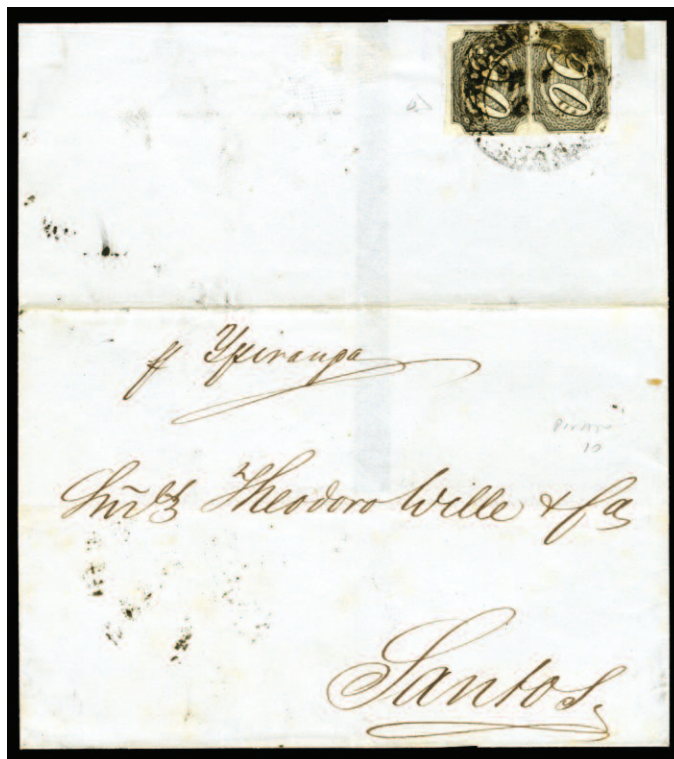 60 60
p Ypiranga
Theodoro Wille & Ca
Santos.
10